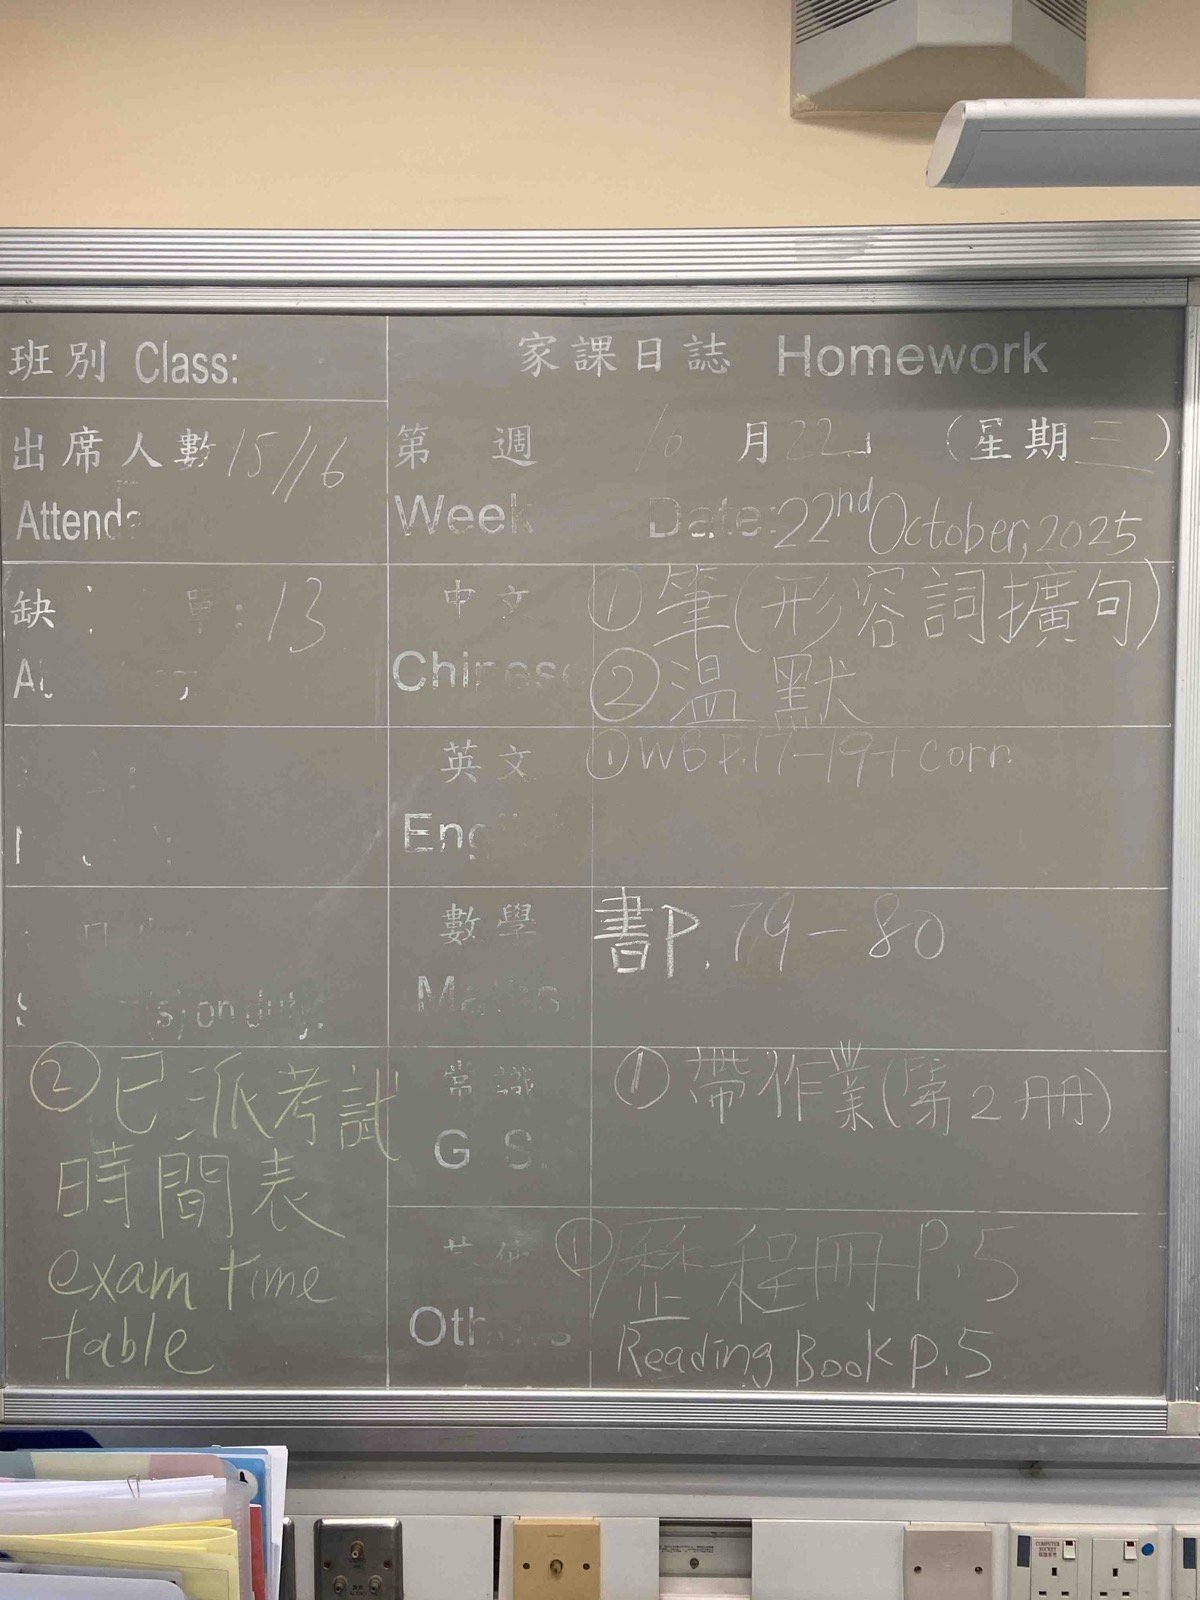 班別 Class:
家課日誌 Homework
出席人數 15/16
第 週 10 月 22 (星期三)
Week Date: 22nd October, 2025
缺 單: 13
中文 ① 筆(形容詞擴句)
Chinese ② 溫默
英文 ① WB P.17-19 + corr.
數學 書P. 79-80
Maths
(s) on duty:
② 已派考試
時間表
exam time
table
常識 ① 帶作業(第2冊)
G S.
① 歷程冊 P.5
Others Reading Book p.5
COMPUTER
SOCKET